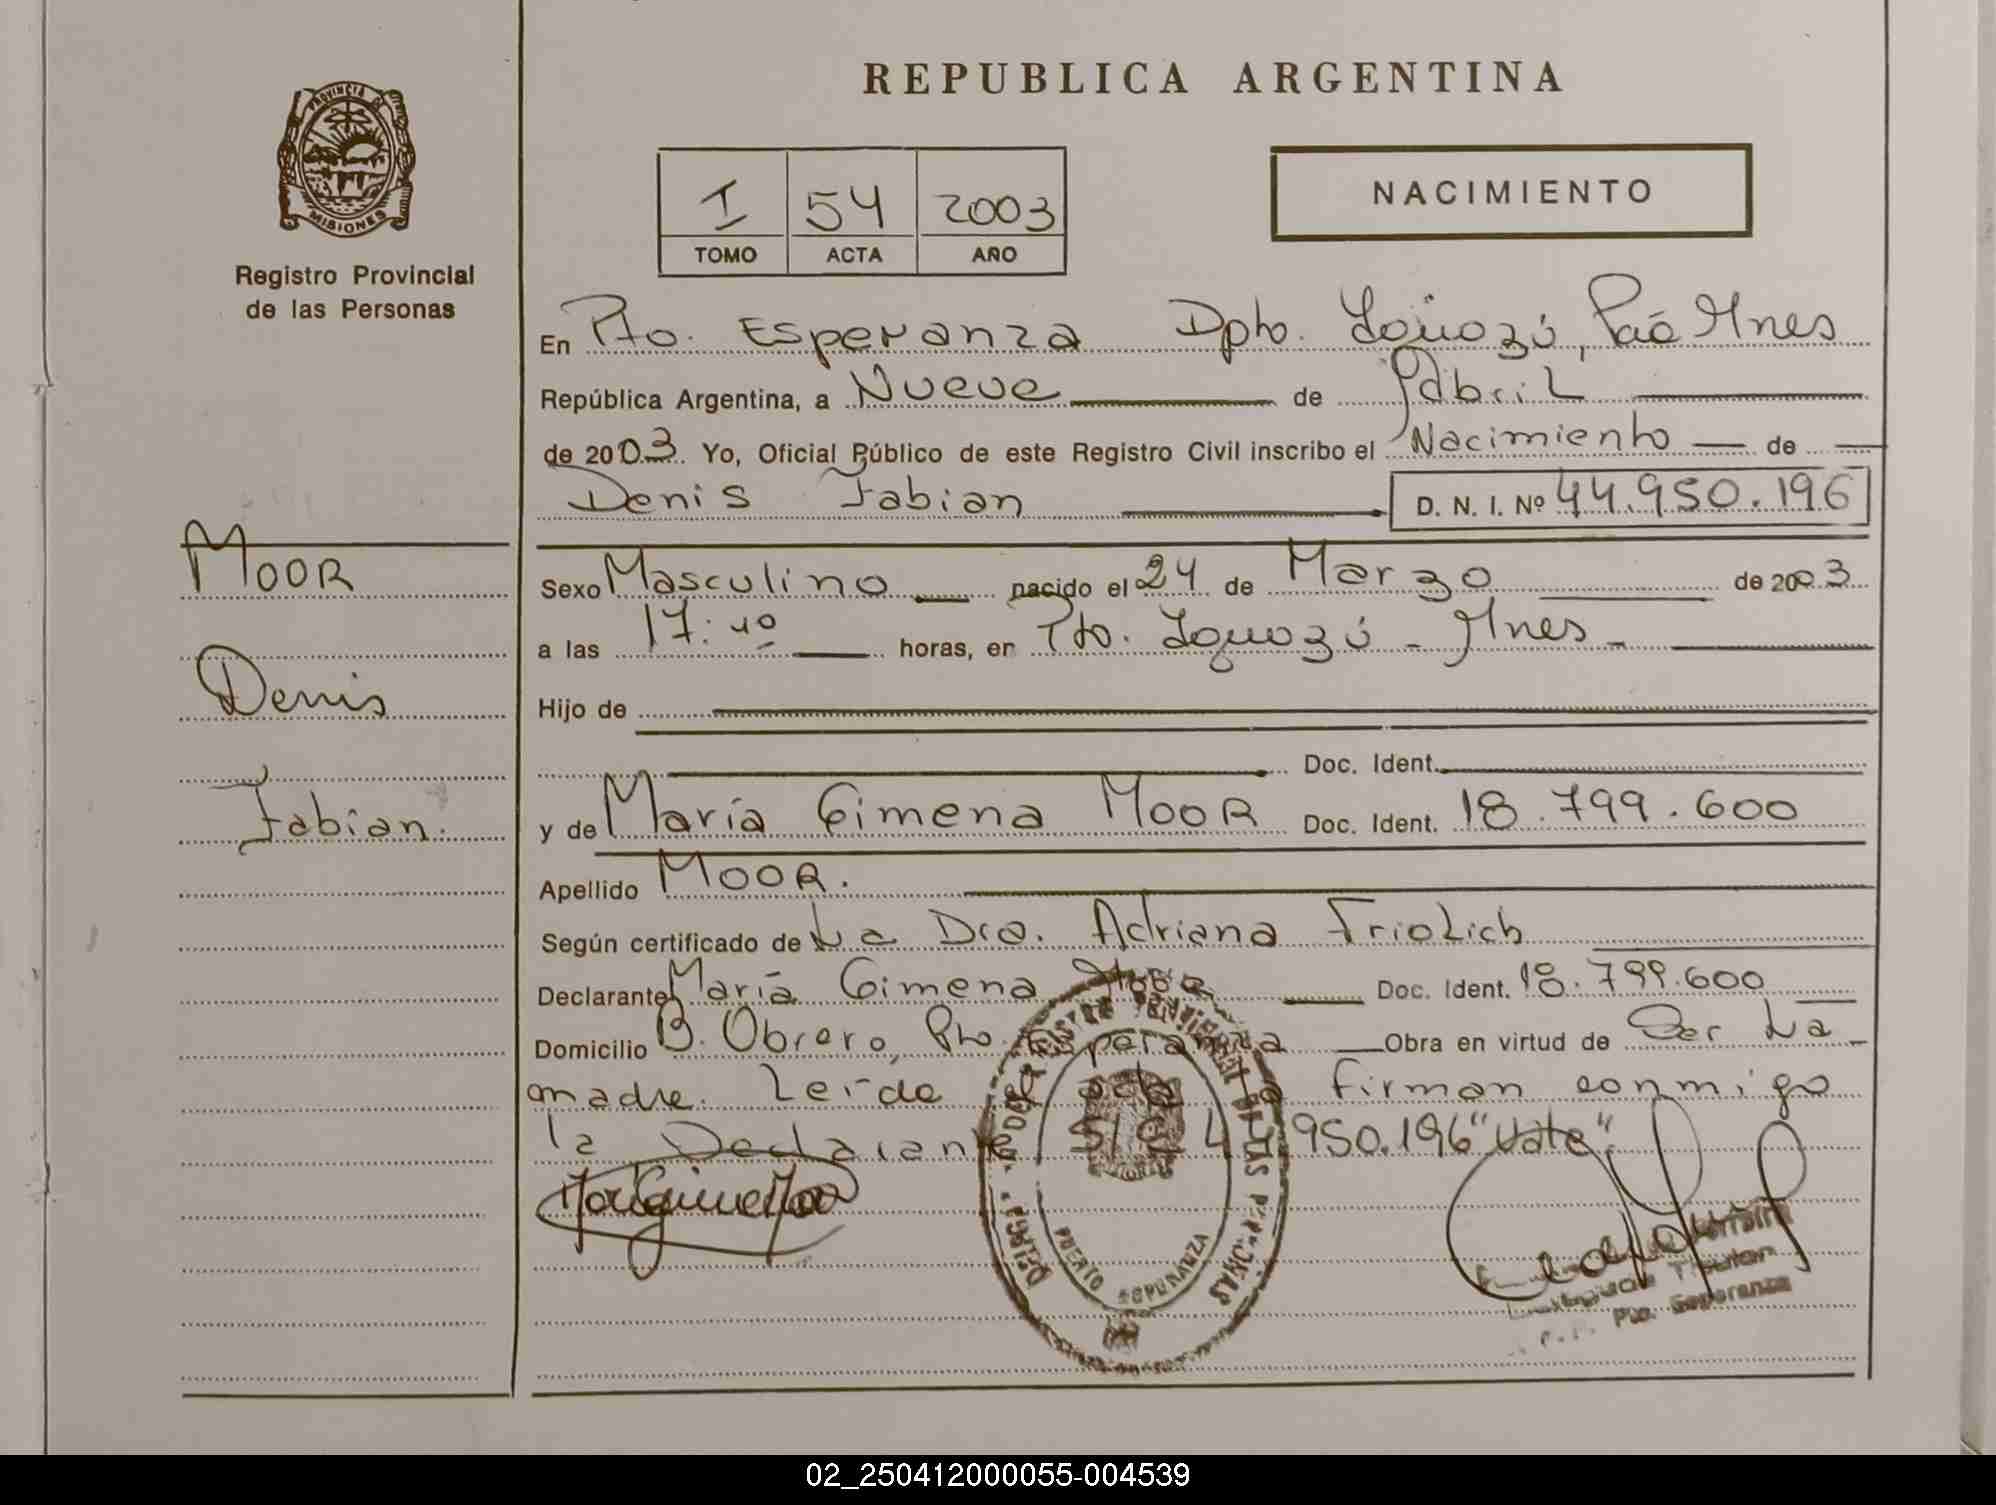 REPUBLICA ARGENTINA
PROVINCIA DE
MISIONES
Registro Provincial
de las Personas
I 54 2003
TOMO ACTA AÑO
NACIMIENTO
En Pto. Esperanza Dpto. Iguazú, Mnes
República Argentina, a Nueve de Abril
de 2003 Yo, Oficial Público de este Registro Civil inscribo el Nacimiento de
Denis Fabian D. N. I. Nº 44.950.196
MOOR
Denis
Fabian.
Sexo Masculino nacido el 24 de Marzo de 2003
a las 17:40 horas, en Pto. Iguazú - Mnes -
Hijo de
Doc. Ident.
y de María Gimena MOOR Doc. Ident. 18.799.600
Apellido MOOR.
Según certificado de La Dra. Adriana Friolich
Declarante María Gimena Moor Doc. Ident. 18.799.600
Domicilio B. Obrero, Pto. Esperanza Obra en virtud de Ser La
madre. Leída el acta la firman conmigo
la Declarante S/R 44.950.196 "Vale".
REGISTRO PROVINCIAL DE LAS PERSONAS
PUERTO ESPERANZA
Titular
Pto. Esperanza
02_250412000055-004539